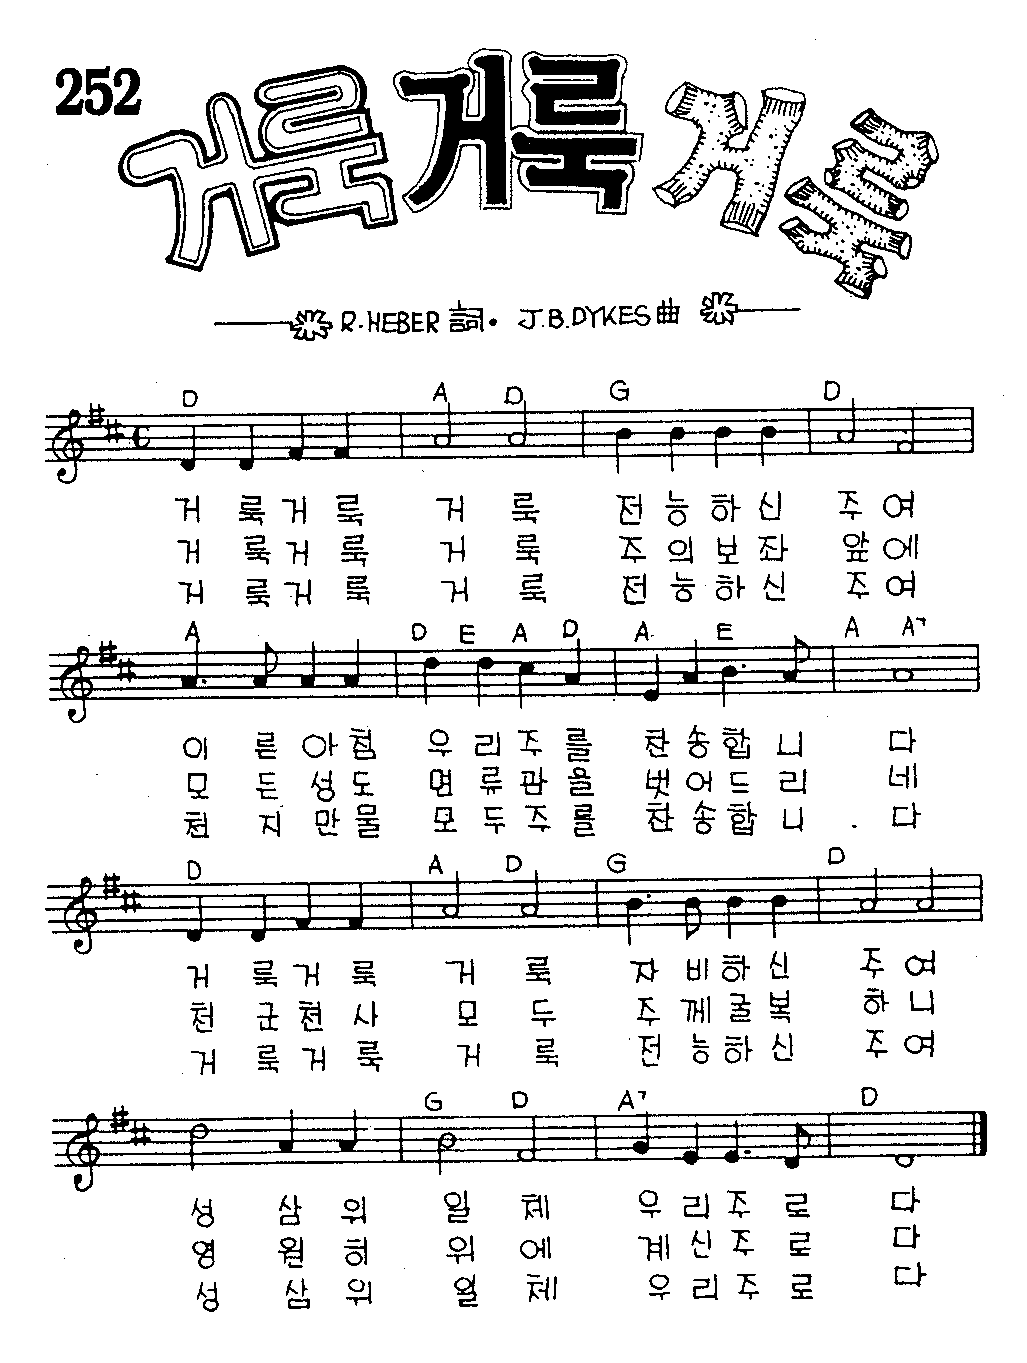 252
거룩 거룩 거룩
R.HEBER 詞. J.B.DYKES 曲
D A D G D
거 룩 거 룩 거 룩 전 능 하 신 주 여
거 룩 거 룩 거 룩 주 의 보 좌 앞 에
거 룩 거 룩 거 룩 전 능 하 신 주 여
A D E A D A E A A7
이 른 아 침 우 리 주 를 찬 송 합 니 다
모 든 성 도 면 류 관 을 벗 어 드 리 네
천 지 만 물 모 두 주 를 찬 송 합 니 다
D A D G D
거 룩 거 룩 거 룩 자 비 하 신 주 여
천 군 천 사 모 두 주 께 굴 복 하 니
거 룩 거 룩 거 룩 전 능 하 신 주 여
G D A7 D
성 삼 위 일 체 우 리 주 로 다
영 원 히 위 에 계 신 주 로 다
성 삼 위 일 체 우 리 주 로 다